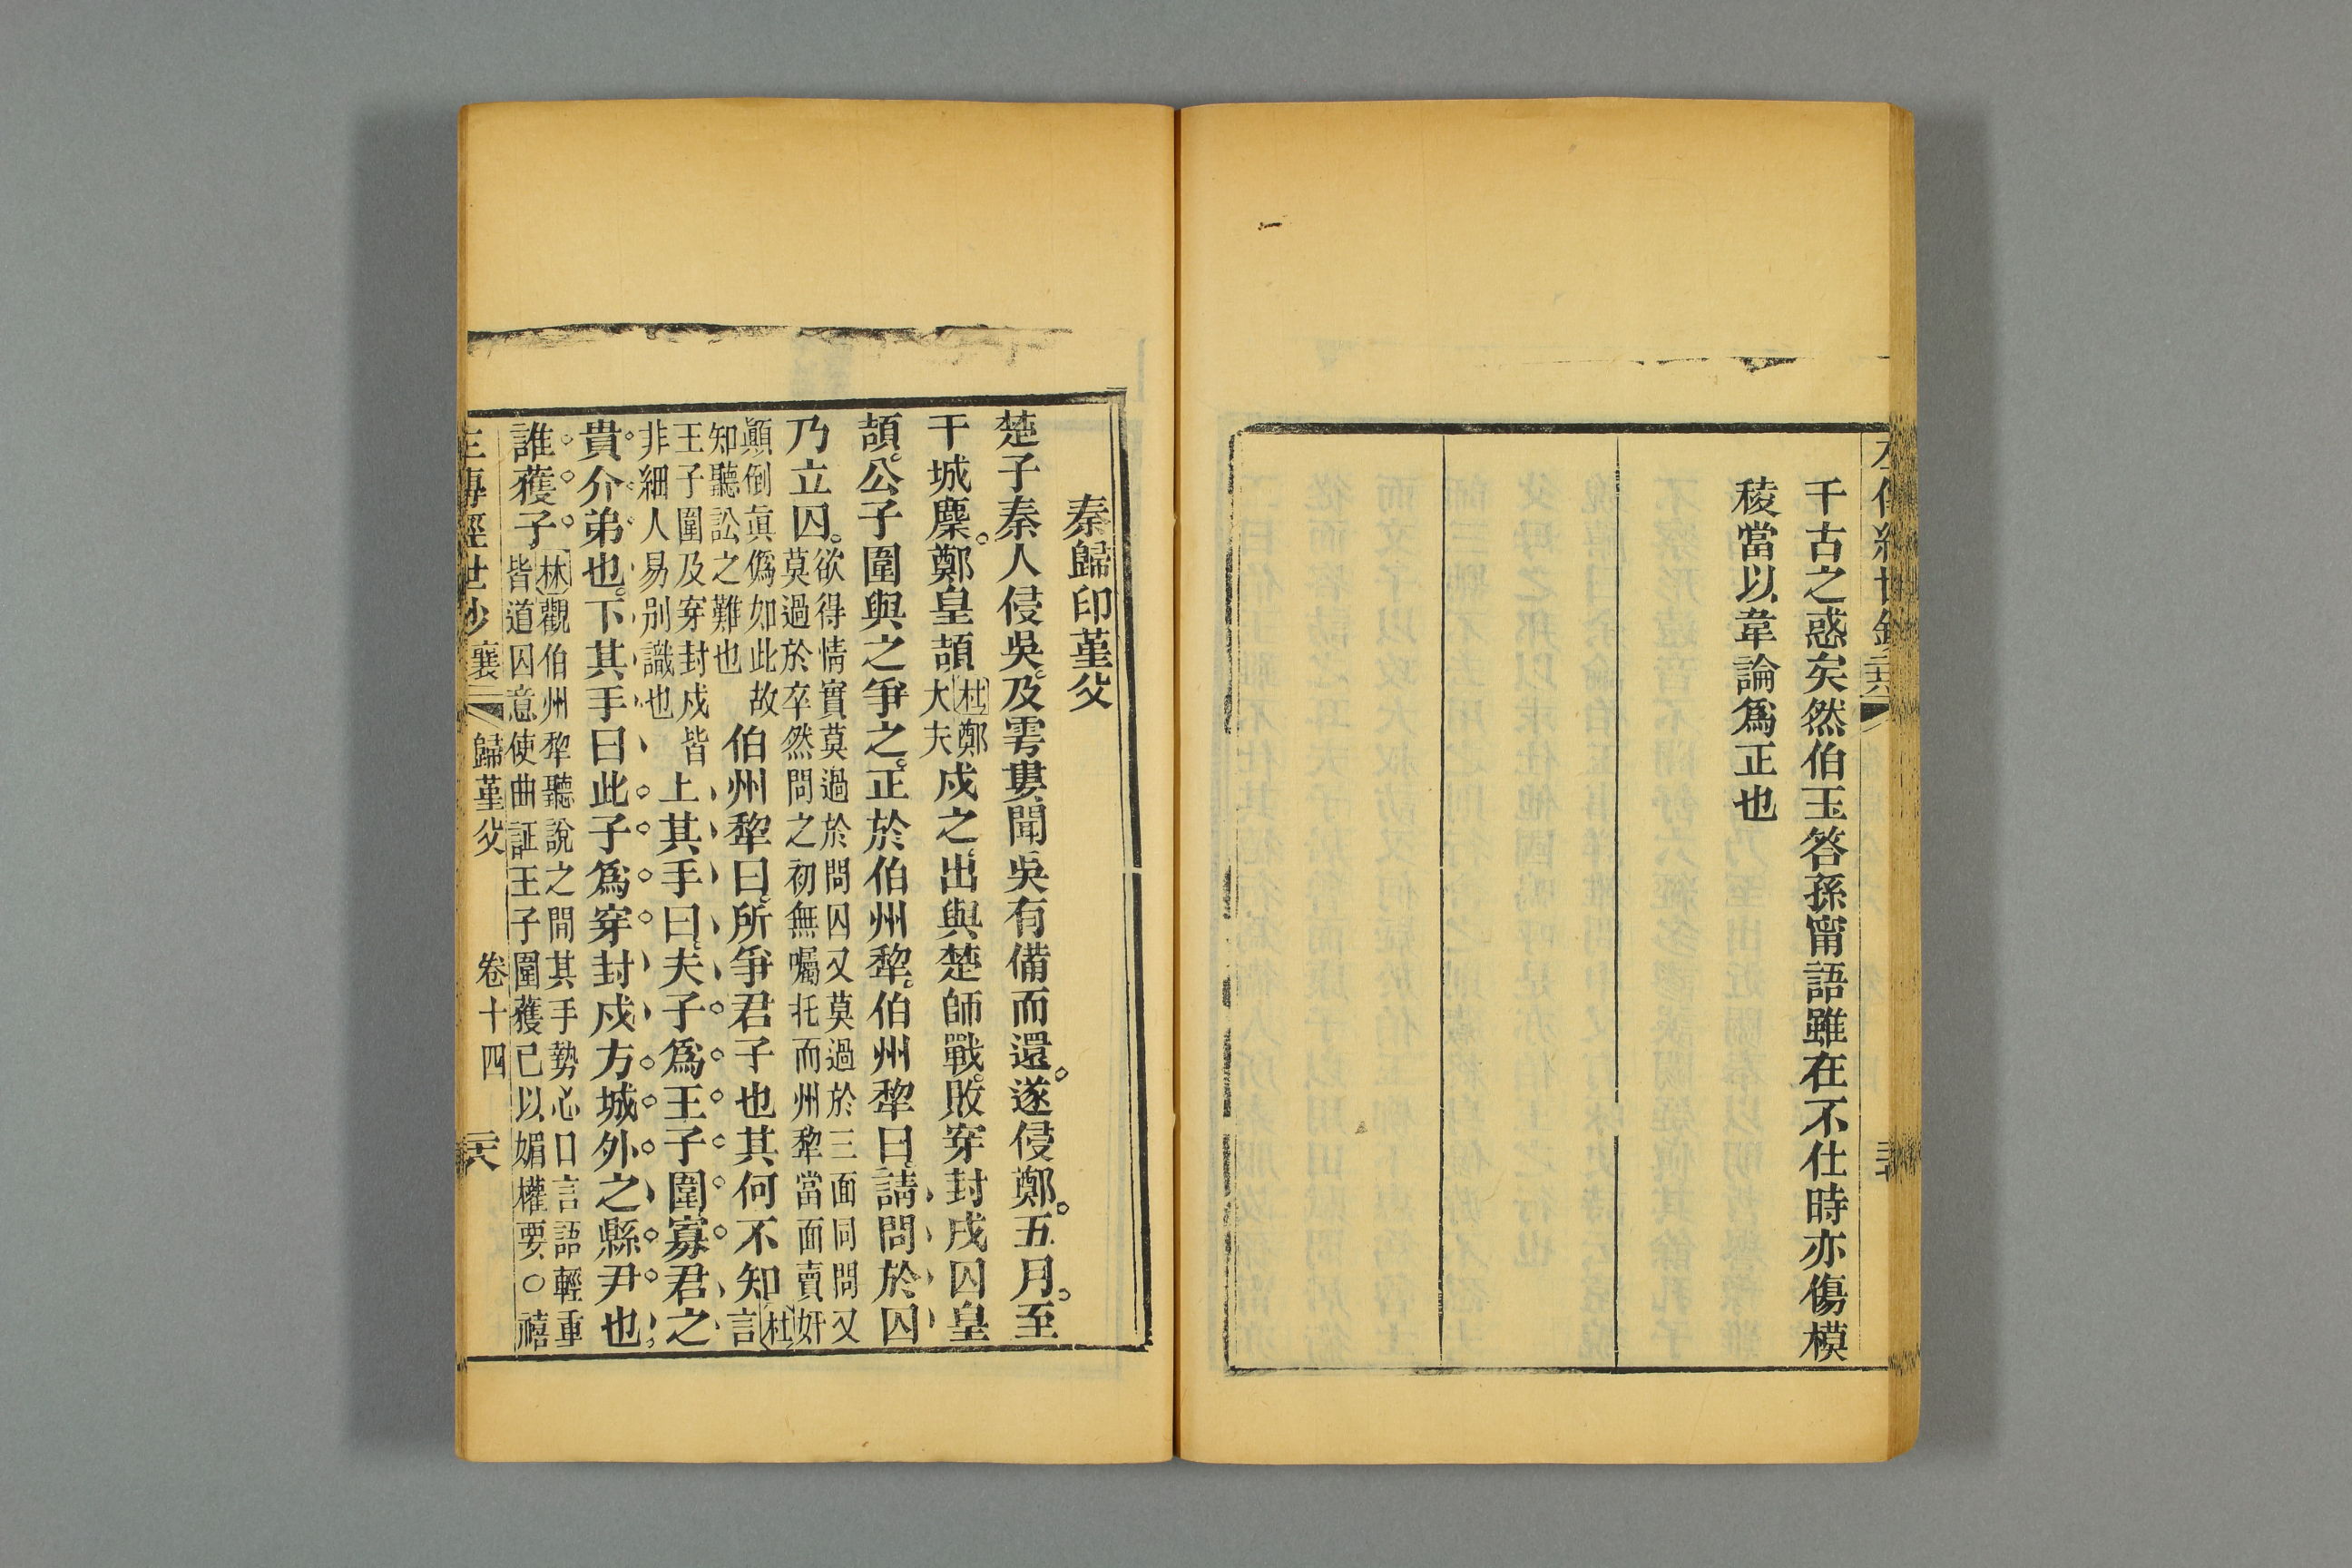 千古之惑矣然伯玉答孫甯語雖在不仕時亦傷模
稜當以韋論爲正也
秦歸印堇父
楚子秦人侵吳及雩婁聞吳有備而還遂侵鄭五月至
于城麇鄭皇頡杜鄭大夫戍之出與楚師戰敗穿封戌囚皇
頡公子圍與之爭之正於伯州犂伯州犂曰請問於囚
乃立囚欲得情實莫過於問囚又莫過於三面同問又莫過於卒然問之初無囑托而州犂當面賣奸
顚倒眞僞如此故知聽訟之難也伯州犂曰所爭君子也其何不知杜言
王子圍及穿封戌皆非細人易別識也上其手曰夫子爲王子圍寡君之
貴介弟也下其手曰此子爲穿封戌方城外之縣尹也
誰獲子林觀伯州犂聽說之間其手勢心口言語輕重皆道囚意使曲証王子圍獲己以媚權要○禧
左傳經世鈔 襄二 歸堇父 卷十四